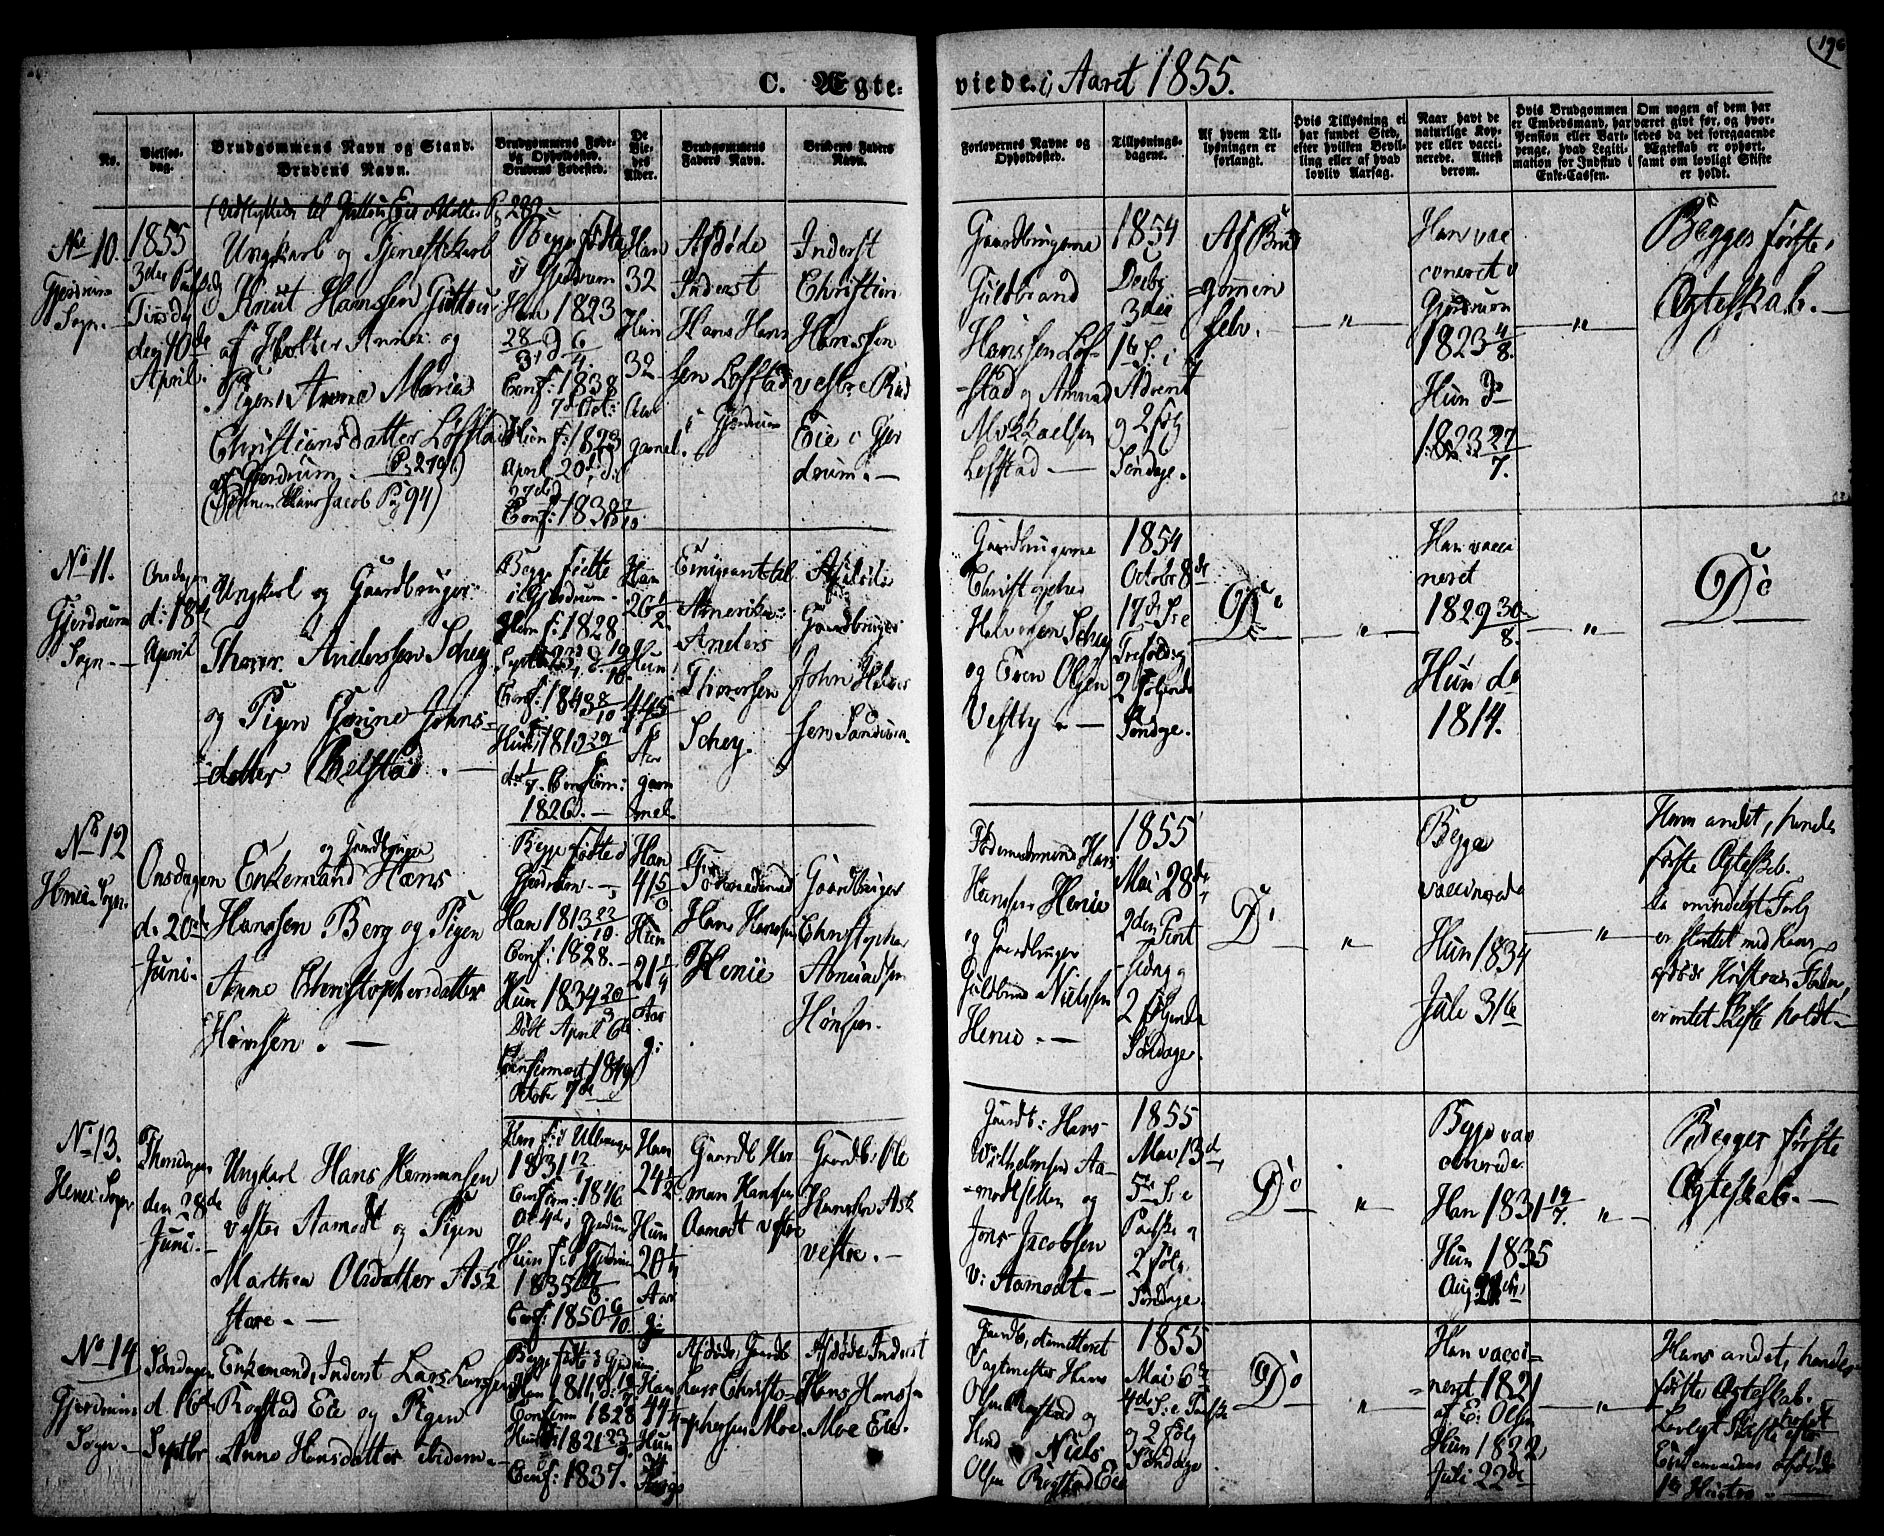 C. Ægte-
viede i Aaret 1855.
196
No.
Vielses-
dag.
Brudgommens Navn og Stand.
Brudens Navn.
Brudgommens Føde-
og Opholdssted.
Brudens Fødested.
De
Vie-
des
Alder.
Brudgommens
Faders Navn.
Brudens Faders
Navn.
Forlovernes Navne og
Opholdssted.
Tillysnings-
dagene.
Af hvem Til-
lysningen er
forlangt.
Hvis Tillysning ei
har fundet Sted,
efter hvilken Bevil-
ling eller af hvad
lovlig Aarsag.
Naar havt de
naturlige Kop-
per eller vacci-
nerede. Attest
derom.
Hvis Brudgommen
er Embedsmand, har
Pension eller Vart-
penge, hvad Legiti-
mation for Indskud i
Enke-Cassen.
Om nogen af dem har
været givt før, og hvor-
ledes da det foregaaende
Ægteskab er ophørt,
samt om lovligt Skifte
er holdt.
No 10.
Gjerdrum
Sogn.
1855
3die
Tirsdag
den 10de
April.
Ungkarl og Tjenestekarl
Knut Hanssen
af Holter Annex og
Pigen Anne Maria
Christiansdatter Løfstad
af Gjerdrum.
Begge fødte
i Gjerdrum
Han 1823
Conf: 1838
7de Oct:
Hun f: 1823
April 20
Conf: 1838
Han
32
Hun
32
Aar
gamel.
Afdøde
Inderst
Hans Hans-
sen Løfstad
i Gjerdrum
Inderst
Christian
Hanssen
vestre
Eie i Gjer
drum.
Gaardbrugerne
Guldbrand
Hanssen Løf-
stad og Amund
Løfstad
1854
Decbr
3die
1ste S. i
Advent
og 2 følg
Søndage.
Af Brud
gommen
selv.
"
Han vac
cineret
Gjerdrum
1823 4/8.
Hun Do
1823 27/7.
"
Begges første
Ægteskab.
No 11.
Gjerdrum
Sogn.
Onsdagen
d: 18de
April
Ungkarl og Gaardbruger
Thorer Anderssen Schey
og Pigen Gorine Johns-
datter
Begge fødte
i Gjerdrum
Han f: 1828
Conf: 1843 8/10
Hun 1813
1826.
Han
26 1/2
Hun
Aar
gam
mel.
Emigrant til
Amerika:
Anders
Thorersen
Schey.
Afdøde
Gaardbruger
John Halvor
sen
Gaardbrugerne
Christopher
Halvorsen Schey
og Even Olsen
Vestby.
1854
Octobr 8de
17de S: e
Trefoldig
2 følgende
Søndage.
Do
"
Han vacci
neret
1829 30/8.
Hun do
1814.
"
Do
No 12
Henie Sogn.
Onsdagen
d: 20de
Juni.
og Gaardbruger
Enkemand Hans
Hanssen Berg og Pigen
Anne Christophersdatter
Hønsen.
Begge fødte i
Gjerdrum
Han 1813 22/10.
Conf: 1828.
Hun 1834 20/3
Døbt April 6te
Confirmert 1849
Octobr 7de
Han
41
Hun
21 1/4
Aar
g:
Føderaadsmand
Hans Hanssen
Henie
Gaardbruger
Christopher
Amundsen
Hønsen.
Føderaadsmand Hans
Hanssen Henie
og Gaardbruger
Guldbrand Nielssen
Henie.
1855
Mai 28de
2den Pint
sedag og
2 følgende
Søndage.
Do
"
Begge
vaccinerede
Hun 1834
Juli 31te
"
Hans andet, hendes
første Ægteskab.
Da mindeligt Forlig
er sluttet med hans
afdøde Hustrues Fader,
er intet Skifte holdt.
No 13.
Henie Sogn
Thorsdagen
den 28de
Juni.
Ungkarl Hans Hermansen
vestre Aamodt og Pigen
Marthea Olsdatter Ask
store.
1831 12/7
Confirm: 1846
Oct 4de i Gjerdrum
Hun f: i Gjerdrum
1835
Conf: 1850 6/10.
Han
24 1/2
Hun
20 1/4
Aar
g:
Gaardb: Her-
man Hanssen
Aamodt vestre
Gaardb: Ole
Hanssen Ask
vestre.
Gaardb: Hans
Wilhelmsen Aa-
modt og
Jens Jacobsen
V: Aamodt.
1855
Mai 13de
5te S: e
Paaske og
2 følg.
Søndage.
Do
"
Begge vac
cinerede.
Han 1831 19/7.
Hun 1835
Aug:
"
Begges første
Ægteskab.
No 14
Gjerdrum
Sogn.
Søndagen
d. 16de
Septbr
Enkemand, Inderst Lars Larssen
Rogstad Eie og Pigen
Anne Hansdatter ibidem.
Begge fødte i Gjerdrum
Han 1811
Confirm 1828
Hun 1821
Conf: 1837.
Han
44
Hun
34
Aar g:
Afdøde, Gaardb
Lars Christo-
phersen Moe.
Afdøde, Inderst
Hans Hanssen
Moe Eie.
Gaardb, demitteret
Vagtmester Hans
Olsen Rogstad og
Niels
Olsen Rogstad Eie
1855
Mai 6te
4de S: e Paaske
og 2 følg
Søndage
Do
"
Han vacci-
neret 1821
af E: Olsen
Hun 1822,
Juli 22de
"
Hans andet, hendes
første Ægteskab.
Lovligt Skifte holdt efter
Enkemandens afdøde
1ste Hustru.